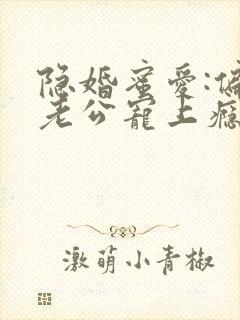 隐婚蜜爱:偏
老公宠上瘾
激萌小青椒